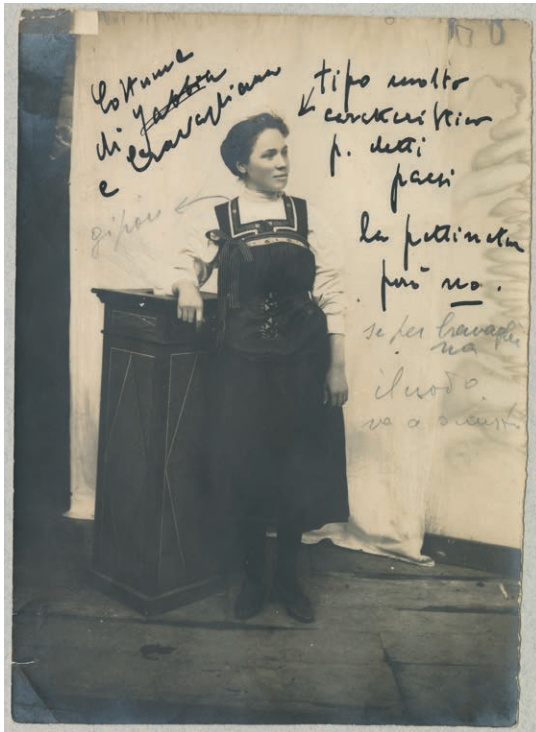 Costume
di Gabbia
e Cravagliana
tipo molto
caratteristico
p. detti
paesi
la pettinatura
però no.
gipon
se per Cravaglia
na
il nodo
va a sinistra